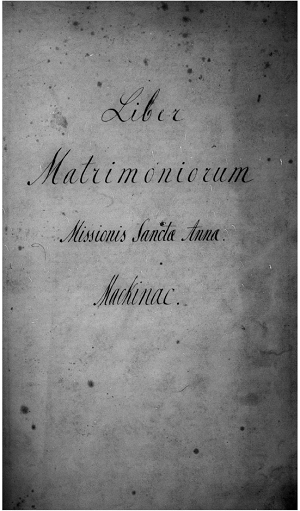 Liber
Matrimoniorum
Missionis Sanctæ Anna.
Mackinac.